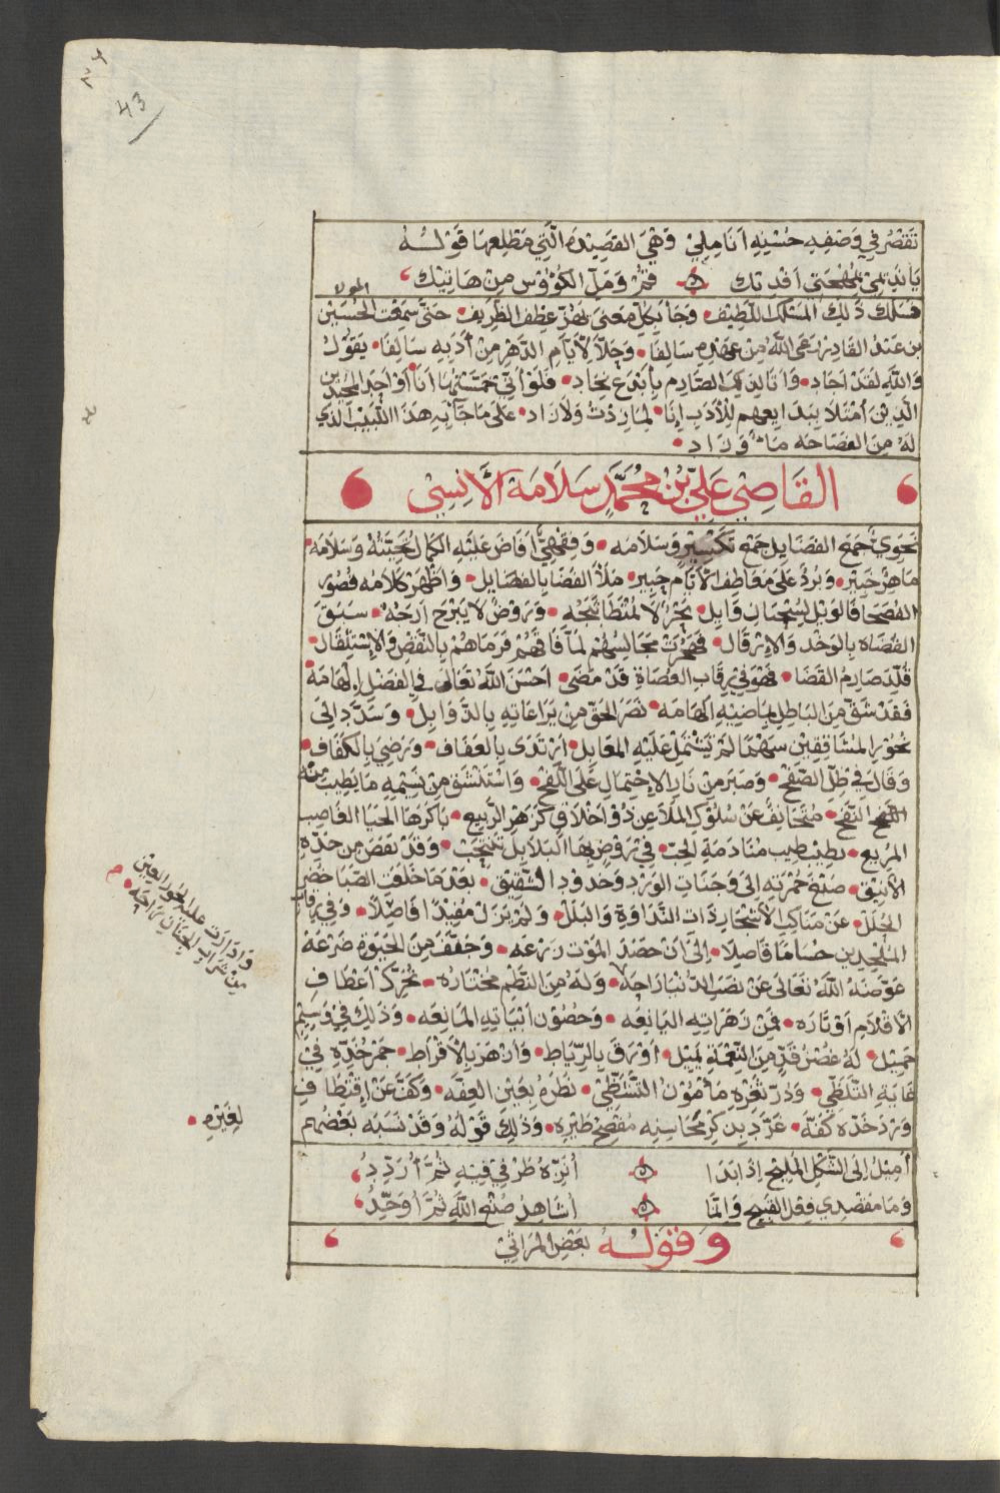 43
تقصر في وصفه حسنه اناملي وهي القصيده التي مطلعها قوله
يا نديمي بمهجتي افديك فم وملّ الكؤوس من هاتيك
فسلك ذلك المسلك اللطيف وجا بكل معنى يهز عطف الظريف حتى سمعت الحسين
بن عبد القادر رعى الله من عهده سالفا وحلا لايام الدهر من أدبه سالفا يقول
والله لقد اجاد وانا لذلك الصادم بابدع نجاد فلو أني
الذين امتلا ببدايعهم للأدب إنا لما زدت ولا زاد على ما جا به هذا اللبيب الذي
له من الفصاحه ما وزاد
القاضي علي بن محمد سلامة الآنسي
نحوي جمع الفضايل جمع تكسير وسلامه وفقهي افاض عليه الكمال تحيته وسلامه
ماهر خبير وبرد على معاطف الأيام حبير ملأ الفضا بالفضايل واظهر كلامه قصور
الفصحا فالويل لسحبان وايل بحر لا تمتطا ثبجه وروض لا يبرح ارجه سبق
القضاه بالوخد والارقال فهجرت مجالسهم لما فاقهم فرماهم بالنقص والاستثقال
قلد صارم القضا فهو في رقاب العصاة قد مضى احسن الله تعالى في الفصل إلهامه
فقد شق من الباطل بماضيه الهامه نصر الحق من يراعاته بالذوابل وسدد الى
نحور المشاققين سهما لم يشتمل عليه المعابل ارتدى بالعفاف ورضي بالكفاف
وقال في ظل الصفح وصبر من نار الاحتمال على اللفح واستنشق من نسيمه ما يطيب منه
النفح متجانف عن سلوك الملاعن ذو اخلاق كزهر الربيع باكرها الحيا الغاصب
المريع يطيب طيب منادمة الحب في روض بها البلابل تنتحب وقد نفض من خده
الأنيق صبغ حمرته الى وجنات الورد وخدود الشقيق بعد ما خلعت الصبا خضر
الحلل عن مناكب الأشجار ذات النداوة والبلل ولم يزل مفيدا فاضلا وفي رقاب
الملحدين حساما فاصلا إلى ان حصد الموت زرعه وجفف من الحيوة ضرعه
عوضه الله تعالى عن نصب الدنيا راحه وله من النظم مختاره تحرك اعطاف
الاقلام اوتاره فمن زهراته اليانعه وحصون ابياته المانعه وذلك في وسيم
جميل له غصن قد من النعمة يميل أورق بالرياط وازهر بالأقراط جمر خده في
غاية التلظي ودر ثغره مأمون التشظي نظره بعين العفه وكف عن إقتطاف
ورد خده كفه غرد بذكر محاسنه مفصح طيره وذلك قوله وقد نسبه بعضهم
أميل إلى الشكل المليح إذا بدا أنزه طرفي فيه ثم أردد
وما مقصدي فعل القبيح وانما أشاهد صنع الله ثم أوحد
وقوله بعض المراثي
وادارت عليه الحور العين
من شراب الجنان راحه
لغيره